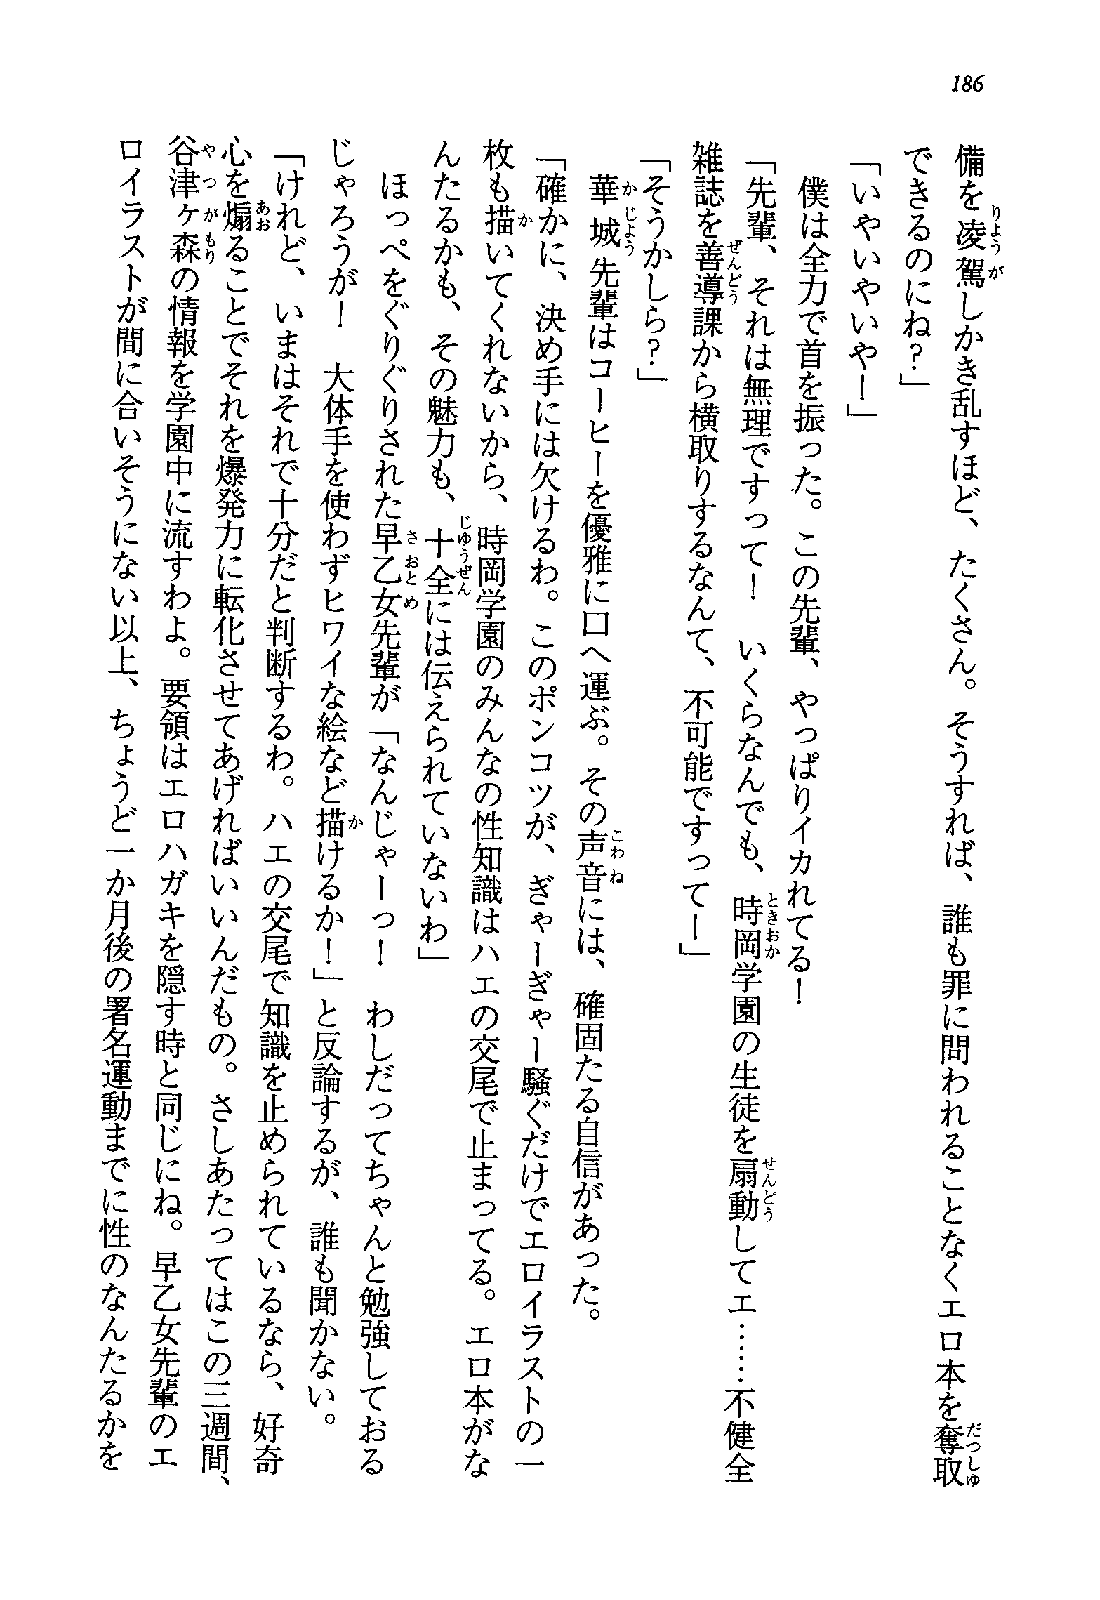 186
備を凌駕しかき乱すほど、たくさん。そうすれば、誰も罪に問われることなくエロ本を奪取
できるのにね？」
「いやいやいやー」
　僕は全力で首を振った。この先輩、やっぱりイカれてる！
「先輩、それは無理ですって！　いくらなんでも、時岡学園の生徒を扇動してエ……不健全
雑誌を善導課から横取りするなんて、不可能ですってー」
「そうかしら？」
　華城先輩はコーヒーを優雅に口へ運ぶ。その声音には、確固たる自信があった。
「確かに、決め手には欠けるわ。このポンコツが、ぎゃーぎゃー騒ぐだけでエロイラストの一
枚も描いてくれないから、時岡学園のみんなの性知識はハエの交尾で止まってる。エロ本がな
んたるかも、その魅力も、十全には伝えられていないわ」
　ほっぺをぐりぐりされた早乙女先輩が「なんじゃーっ！　わしだってちゃんと勉強しておる
じゃろうが！　大体手を使わずヒワイな絵など描けるか！」と反論するが、誰も聞かない。
「けれど、いまはそれで十分だと判断するわ。ハエの交尾で知識を止められているなら、好奇
心を煽ることでそれを爆発力に転化させてあげればいいんだもの。さしあたってはこの三週間、
谷津ヶ森の情報を学園中に流すわよ。要領はエロハガキを隠す時と同じにね。早乙女先輩のエ
ロイラストが間に合いそうにない以上、ちょうど一か月後の署名運動までに性のなんたるかを